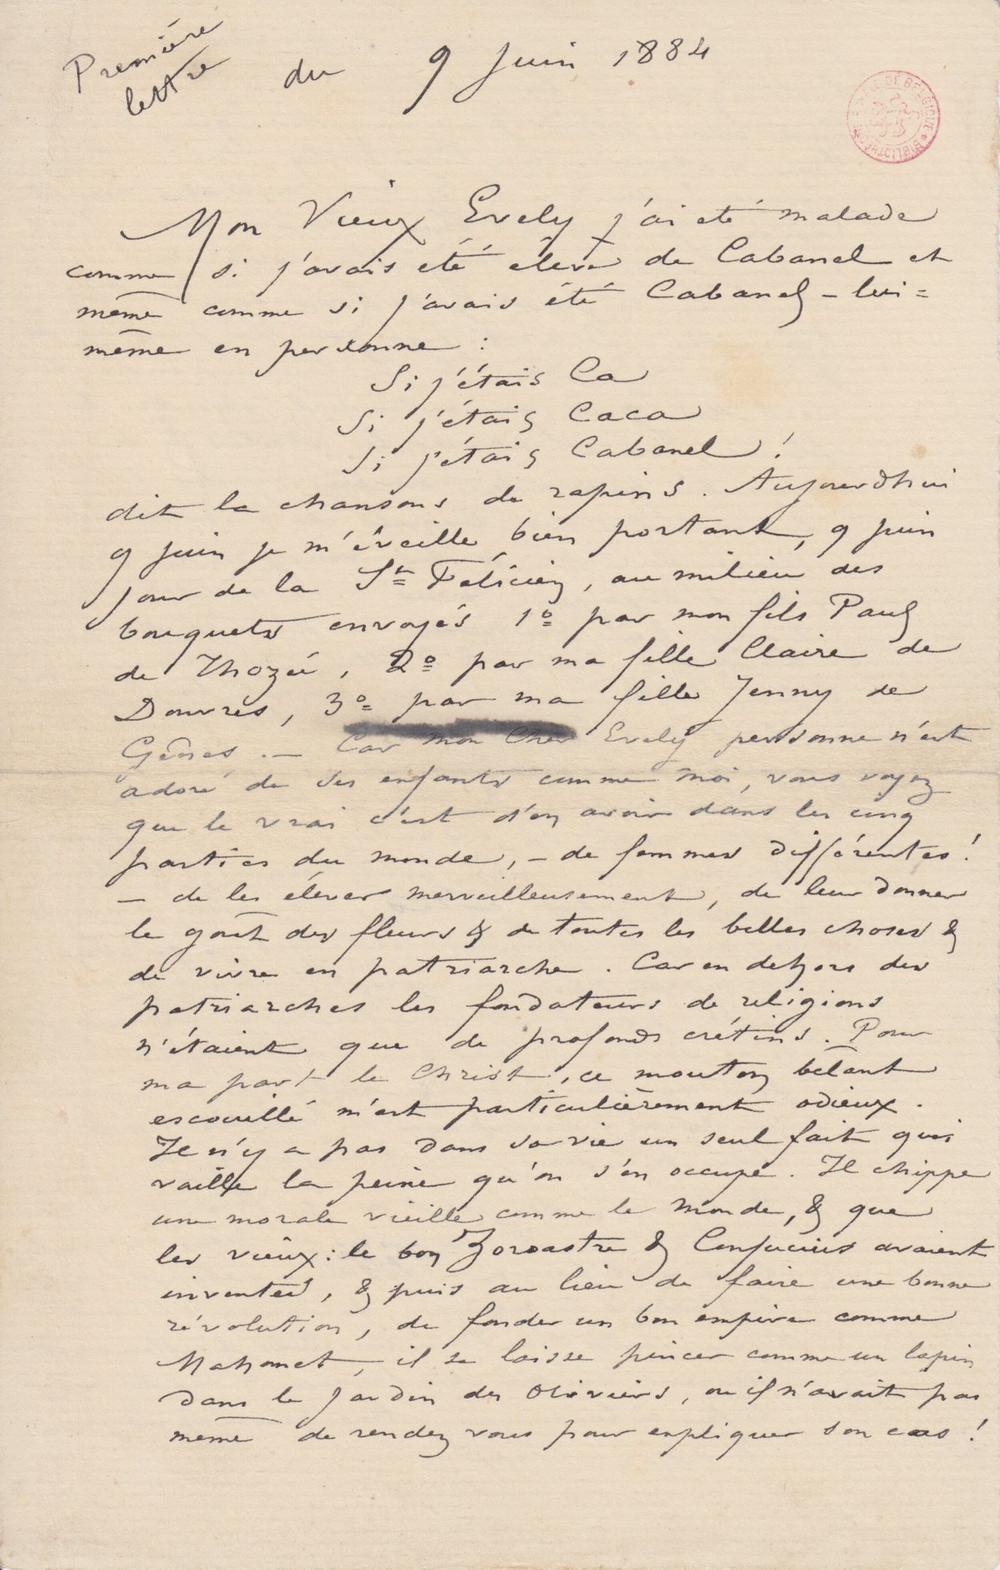 Première
lettre du 9 Juin 1884
BIBLIOTHÈQUE ROYALE DE BELGIQUE
Mon Vieux Evely j'ai eté malade
comme si j'avais été élève de Cabanel et
même comme si j'avais été Cabanel-lui=
même en personne :
Si j'étais Ca
Si j'étais Caca
Si j'étais Cabanel !
dit la chansons de rapins. Aujourdhui
9 juin je m'éveille bien portant, 9 juin
jour de la St Félicien, au milieu des
bouquets envoyés 1o par mon fils Paul
de Thozée, 2o par ma fille Claire de
Douvres, 3o par ma fille Jenny de
Gênes. — Car mon Cher Evely personne n'est
adoré de ses enfants comme moi, vous voyez
que le vrai c'est d'en avoir dans les cinq
parties du monde, – de femmes différentes !
– de les élever merveilleusement, de leur donner
le goût des fleurs & de toutes les belles choses &
de vivre en patriarche. Car en dehors des
patriarches les fondateurs de religions
n'étaient que de profonds crétins. Pour
ma part le Christ, ce mouton bêlant
escouillé m'est particulièrement odieux.
Il n'y a pas dans sa vie un seul fait qui
vaille la peine qu'on s'en occupe. Il chippe
une morale vieille comme le monde, & que
les vieux: le bon Zoroastre & Confucius avaient
inventée, & puis au lieu de faire une bonne
révolution, de fonder un bon empire comme
Mahomet, il se laisse pincer comme un lapin
dans le Jardin des Oliviers, ou il n'avait pas
même de rendez vous pour expliquer son cas !